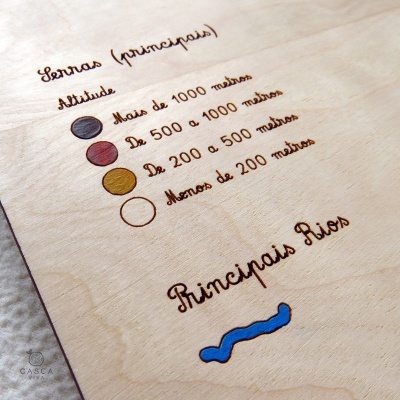 Serras (principais)
Altitude
Mais de 1000 metros
De 500 a 1000 metros
De 200 a 500 metros
Menos de 200 metros
Principais Rios
CASCA
VIVA